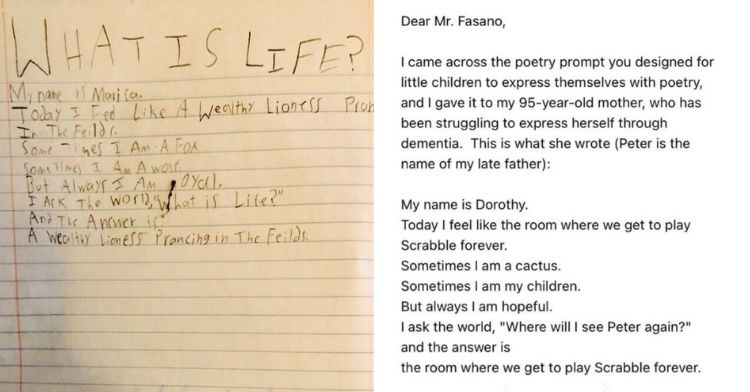 WHAT IS LIFE?
My name is Marisa.
Today I Feel Like A Wealthy Lioness
In The Feilds.
Some Times I Am A Fox
Some Times I Am A
But Always I Am
I Ask The World, "What is Life?"
And The Answer is
A Wealthy Lioness Prancing in The Feilds.
Dear Mr. Fasano,
I came across the poetry prompt you designed for
little children to express themselves with poetry,
and I gave it to my 95-year-old mother, who has
been struggling to express herself through
dementia. This is what she wrote (Peter is the
name of my late father):
My name is Dorothy.
Today I feel like the room where we get to play
Scrabble forever.
Sometimes I am a cactus.
Sometimes I am my children.
But always I am hopeful.
I ask the world, "Where will I see Peter again?"
and the answer is
the room where we get to play Scrabble forever.